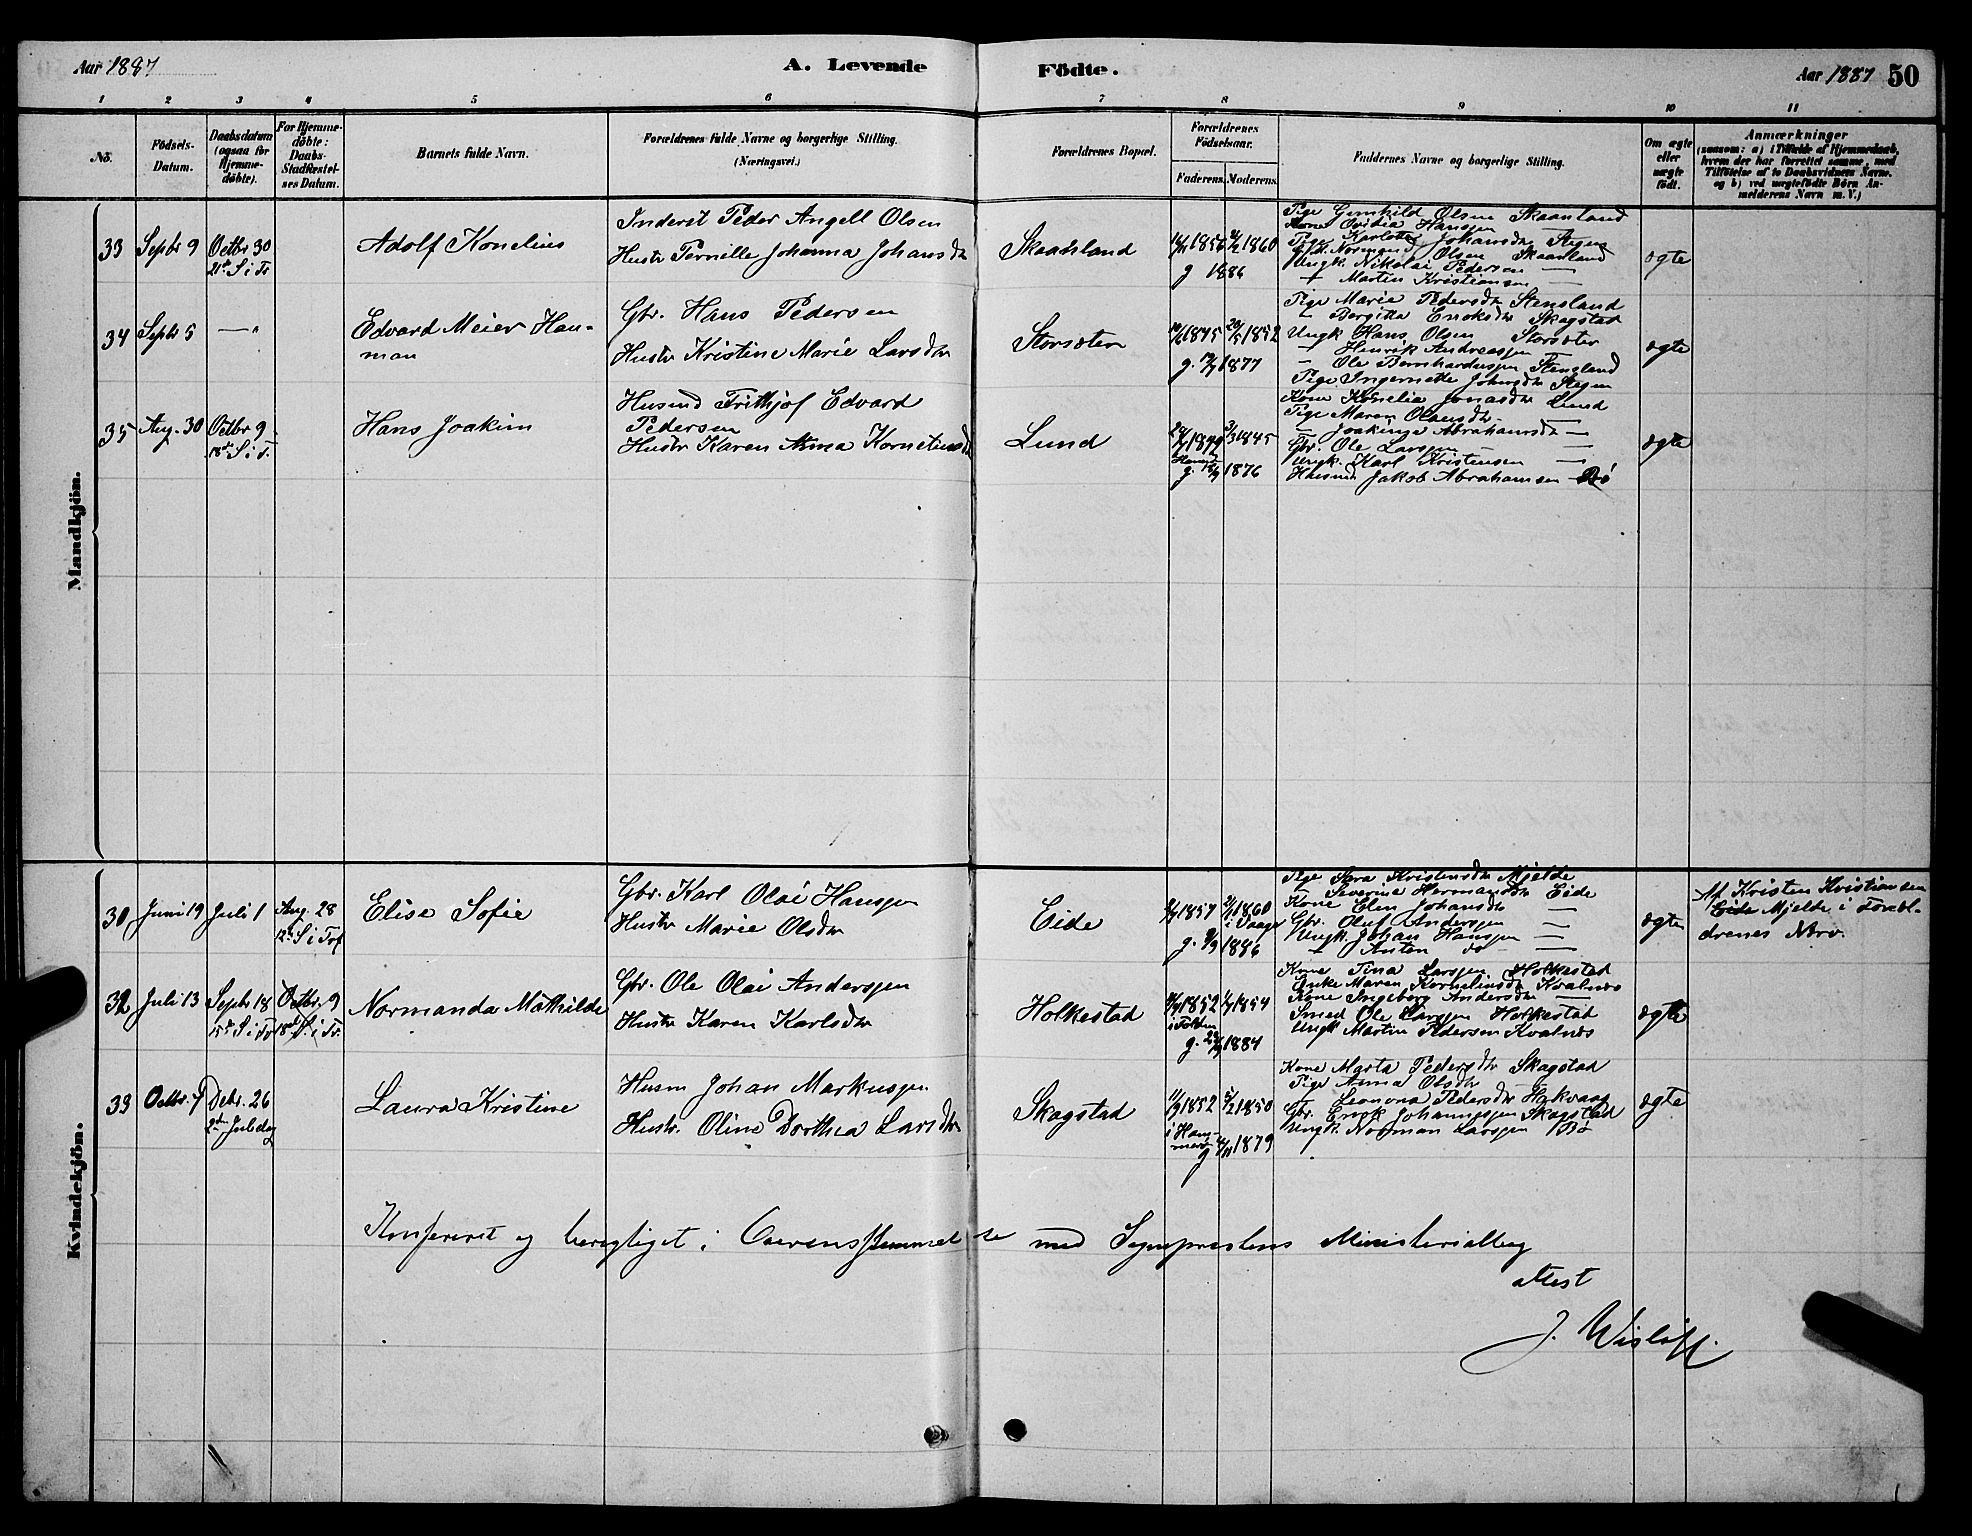 Aar 1887
A. Levende
Födte.
Aar 1887
50
1 2 3 4 5 6 7 8 9 10 11
No.
Födsels-
Datum.
Daabsdatum
(ogsaa for
Hjemme-
döbte).
For Hjemme-
döbte:
Daabs-
Stadfæstel-
ses Datum.
Barnets fulde Navn.
Forældrenes fulde Navne og borgerlige Stilling.
(Næringsvei.)
Forældrenes Bopæl.
Forældrenes
Födselsaar.
Faderens.
Moderens.
Faddernes Navne og borgerlige Stilling.
Om ægte
eller
uægte
födt.
Anmærkninger
(saasom: a) i Tilfælde af Hjemmedaab,
hvem der har forrettet samme, med
Tilföielse af to Daabsvidners Navne.
og b) ved uægtefödte Börn An-
melderens Navn m. V.)
Mandkjön.
33
Septbr 9
Octbr 30
21de S i Tr
Adolf Kornelius
Inderst Peder Angell Olsen
Hustr Pernille Johanna Johansdtr
Skaansland
1856
1860
g 1886
Pige Gunhild Olsen Skaanland
Kone Ovidia Hansen
Pige Karlotte Johansdtr Stegen
Olsen Skaanland
Ungk. Nikolai Pedersen —
— Martin Kristiansen —
ægte
34
Septbr 5
— "
Edvard Meier Han-
man
Gbr. Hans Pedersen
Hustr Kristine Marie Larsdtr
Storsæter
1845
1852
g. 1877
Pige Marie Pedersdtr Stensland
— Bergitta Ericksdtr Skagstad
Ungk Hans Olsen Storsæter
— Henrik Andreassen —
— Ole Bernhardussen Stensland
Pige Ingernette Johansdtr Stegen
ægte
35
Aug. 30
Octbr 9
18de S i T.
Hans Joakim
Husmd Frithjof Edvard
Pedersen
Hustr Karen Anna Korneliusdtr
Lund
1849
1845
g. 1876
Kone Kornelia Jonasdtr Lund
Pige Maren Olausdtr —
— Joakime Abrahamsdtr —
Gbr. Ole Larssen —
Ungk. Karl Kristensen —
Husmd Jakob Abrahamsen Bö
ægte
Kvindekjön.
30
Juni 19
Juli 1
Aug. 28
12te S i Tref
Elise Sofie
Gbr. Karl Olai Hanssen
Hustr Marie Olsdtr
Eide
1857
1860
i Vaage
g. 1886
Pige Sara Kristensdtr Mjelde
— Severine Hermansdtr Eide
Kone Elen Johansdtr —
Gbr. Oluf Anderssen —
Ungk. Johan Hanssen —
— Anton do —
ægte
Af Kristen Kristiansen
Eide Mjelde i Foræl-
drenes Nærv.
32
Juli 13
Septbr 18
15de S i Tr
Octbr. 9
18de S. i Tr.
Normanda Mathilde
Gbr. Ole Olai Anderssen
Hustr Karen Karlsdtr
Holkestad
1852
i Folden
1854
g. 1884
Kone Tina Larssen Holkestad
Enke Maren Korneliusdtr Kvalnæs
Kone Ingeborg Andersdtr —
Smed Ole Larssen Holkestad
Ungk Martin Pedersen Kvalnæs
ægte
33
Octbr. 9
Debr. 26
2den Juledag
Laura Kristine
Husm Johan Markussen
Hustr. Oline Dorthea Larsdtr
Skagstad
1852
i Ham-
merö
1850
g 1879
Kone Marta Pedersdtr Skagstad
Pige Anna Olsdtr
— Leonora Pedersdtr Hakvaag
Gbr. Erick Johannessen Skagstad
Ungk. Norman Larssen Bö
ægte
Konfereret og berigtiget i Overensstemmelse med Sognepræstens Ministerialbog
attest
J. Wisløff.